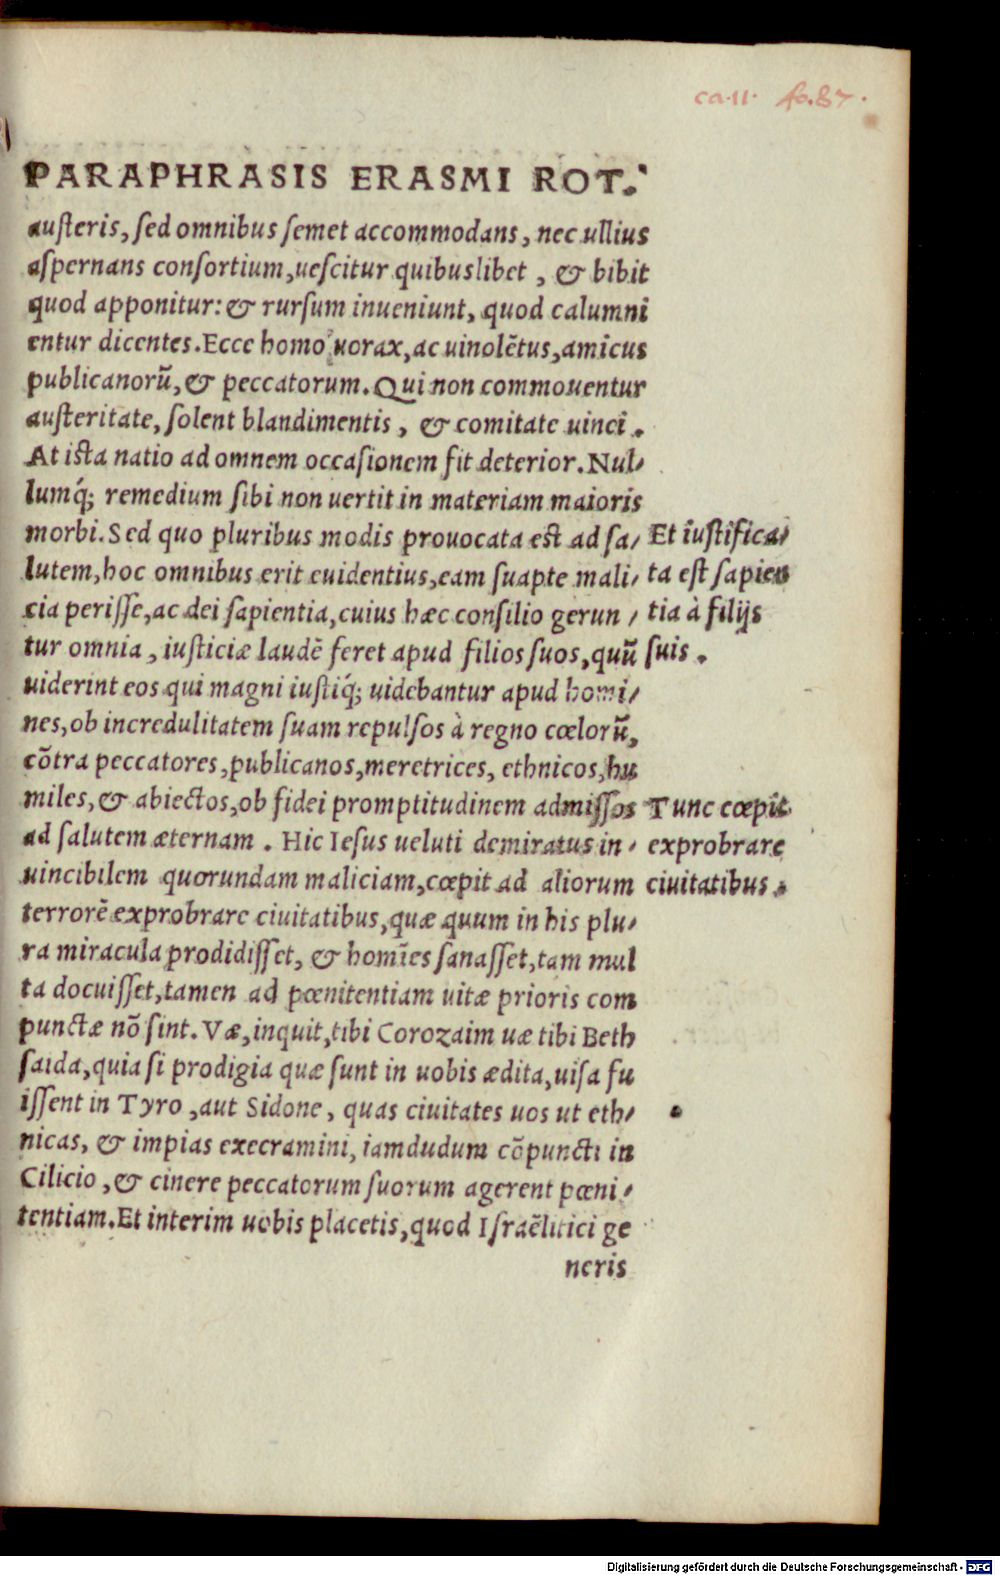 ca.11. fo.87.
PARAPHRASIS ERASMI ROT.
austeris, sed omnibus semet accommodans, nec ullius
aspernans consortium, uescitur quibuslibet, & bibit
quod apponitur: & rursum inueniunt, quod calumni
entur dicentes. Ecce homo uorax, ac uinolẽtus, amicus
publicanorũ, & peccatorum. Qui non commouentur
austeritate, solent blandimentis, & comitate uinci.
At ista natio ad omnem occasionem fit deterior. Nul-
lumq́; remedium sibi non uertit in materiam maioris
morbi. Sed quo pluribus modis prouocata est ad sa-
lutem, hoc omnibus erit euidentius, eam suapte mali-
cia perisse, ac dei sapientia, cuius hæc consilio gerun-
tur omnia, iusticiæ laudẽ feret apud filios suos, quũ
uiderint eos qui magni iustiq́; uidebantur apud homi-
nes, ob incredulitatem suam repulsos à regno cœlorũ,
cõtra peccatores, publicanos, meretrices, ethnicos, hu
miles, & abiectos, ob fidei promptitudinem admissos
ad salutem æternam. Hic Iesus ueluti demiratus in-
uincibilem quorundam maliciam, cœpit ad aliorum
terrorẽ exprobrare ciuitatibus, quæ quum in his plu-
ra miracula prodidisset, & homĩes sanasset, tam mul
ta docuisset, tamen ad pœnitentiam uitæ prioris com
punctæ nõ sint. Væ, inquit, tibi Corozaim uæ tibi Beth
saida, quia si prodigia quæ sunt in uobis ædita, uisa fu
issent in Tyro, aut Sidone, quas ciuitates uos ut eth-
nicas, & impias execramini, iamdudum cõpuncti in
Cilicio, & cinere peccatorum suorum agerent pœni-
tentiam. Et interim uobis placetis, quod Israẽlitici ge
neris
Et iustifica-
ta est sapien
tia à filijs
suis.
Tunc cœpit
exprobrare
ciuitatibus.
Digitalisierung gefördert durch die Deutsche Forschungsgemeinschaft - DFG